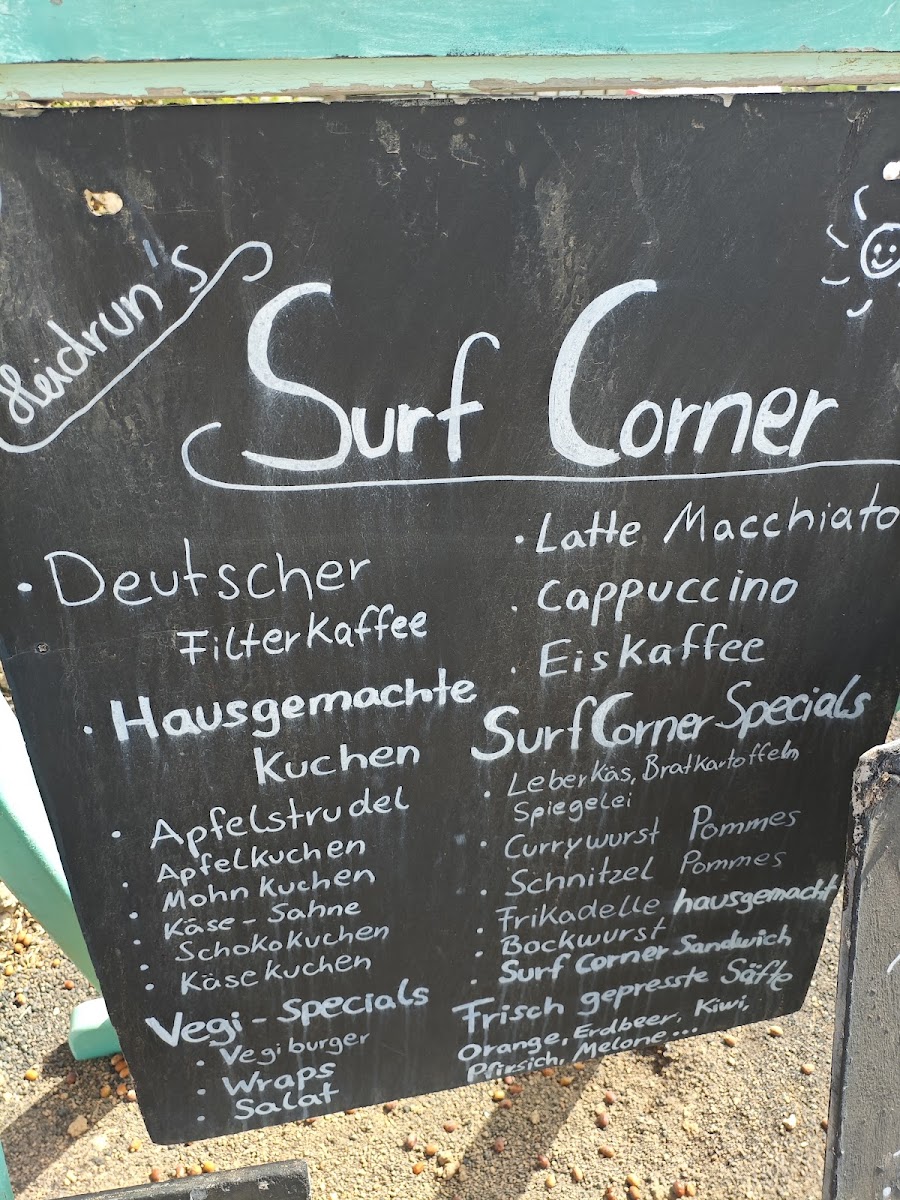 Heidrun's
Surf Corner
· Deutscher
Filterkaffee
· Hausgemachte
Kuchen
· Apfelstrudel
· Apfelkuchen
· Mohnkuchen
· Käse - Sahne
· Schokokuchen
· Käsekuchen
Vegi - Specials
· Vegiburger
· Wraps
· Salat
· Latte Macchiato
· Cappuccino
· Eiskaffee
Surf Corner Specials
· Leberkäs, Bratkartoffeln
Spiegelei
· Currywurst Pommes
· Schnitzel Pommes
· Frikadelle hausgemacht
· Bockwurst
· Surf Corner Sandwich
Frisch gepresste Säfte
Orange, Erdbeer, Kiwi,
Pfirsich, Melone...